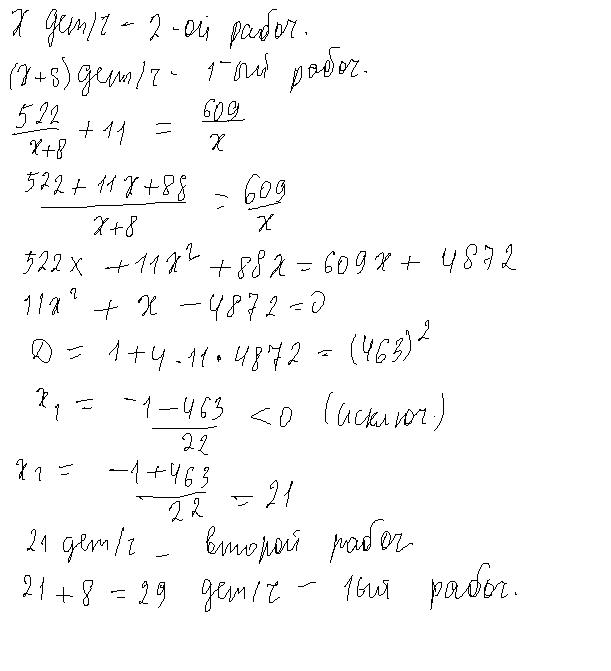 x дет/ч - 2-ой рабоч.
(x+8) дет/ч - 1-ый рабоч.
522/(x+8) + 11 = 609/x
(522+11x+88)/(x+8) = 609/x
522x + 11x² + 88x = 609x + 4872
11x² + x - 4872 = 0
D = 1+4·11·4872 = (463)²
x₁ = (-1-463)/22 < 0 (исключ.)
x₂ = (-1+463)/22 = 21
21 дет/ч - второй рабоч.
21+8 = 29 дет/ч - 1ый рабоч.